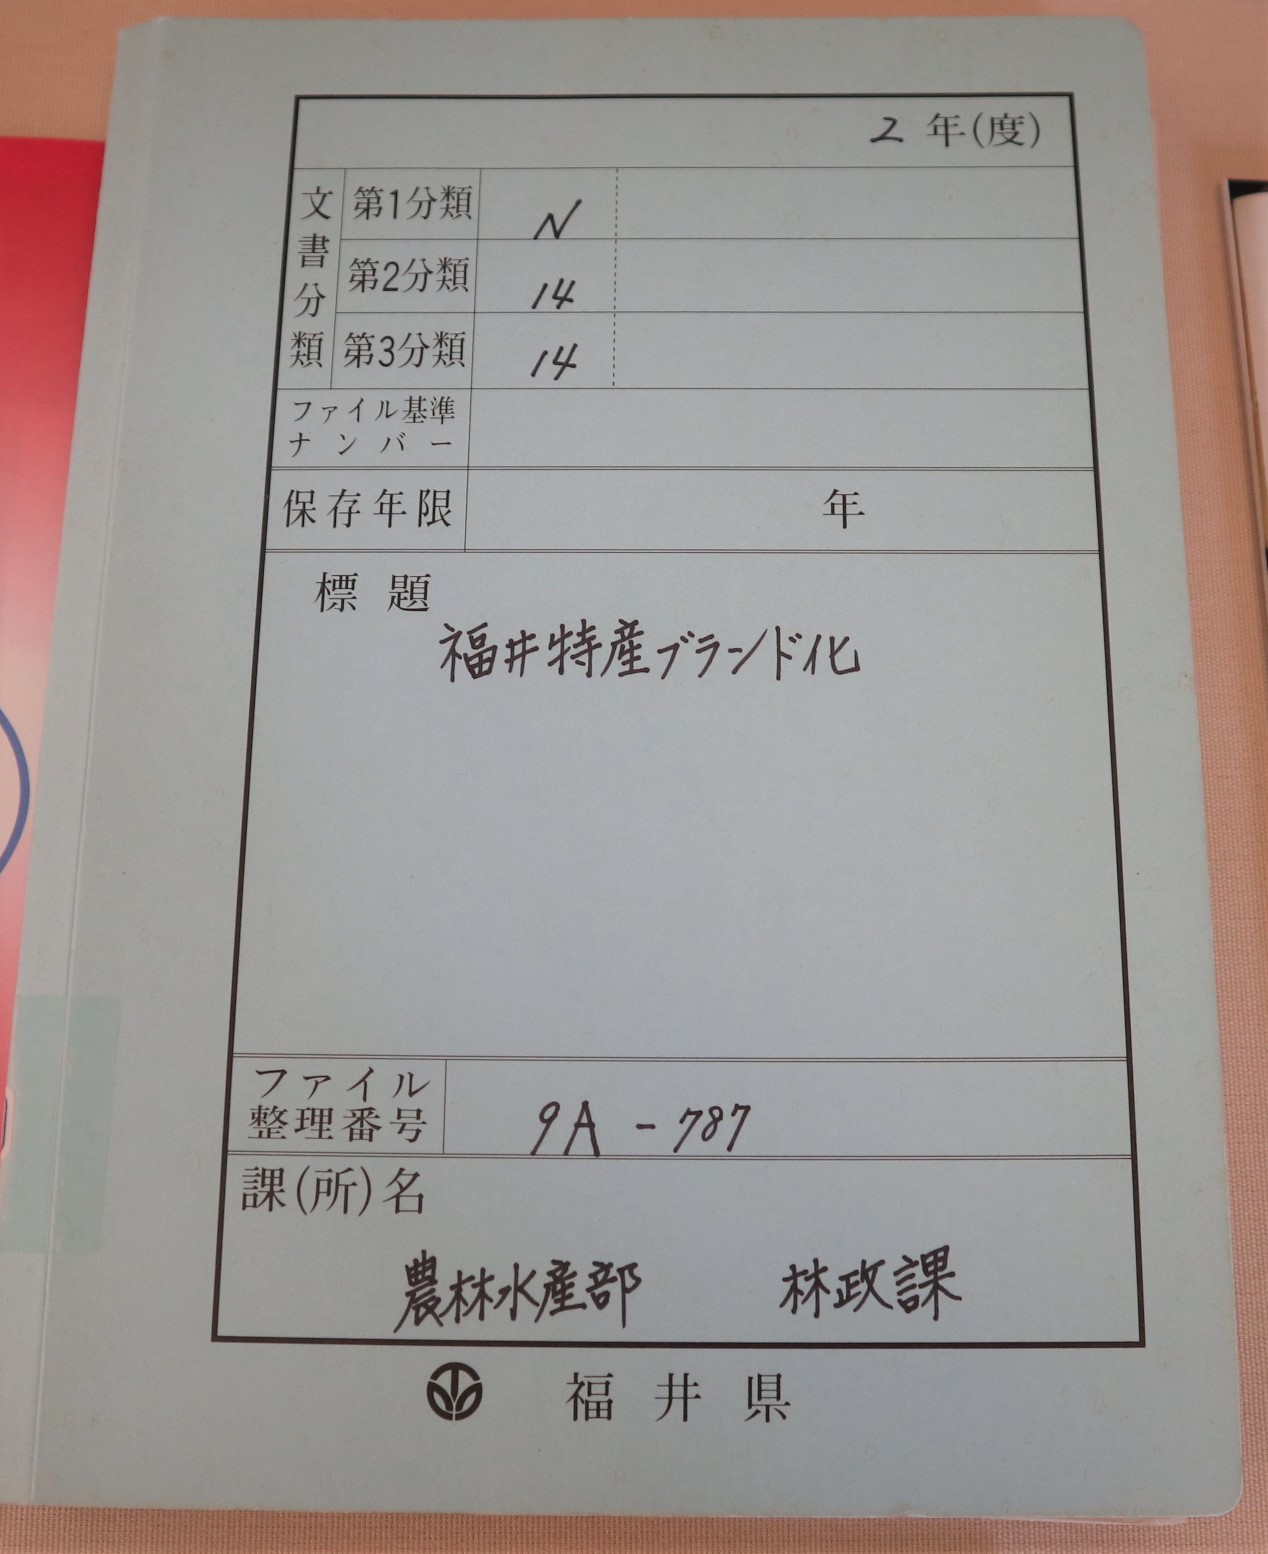 2 年(度)
文書分類
第1分類 N
第2分類 14
第3分類 14
ファイル基準
ナンバー
保存年限 年
標題
福井特産ブランド化
ファイル
整理番号 9A - 787
課(所)名
農林水産部 林政課
福井県